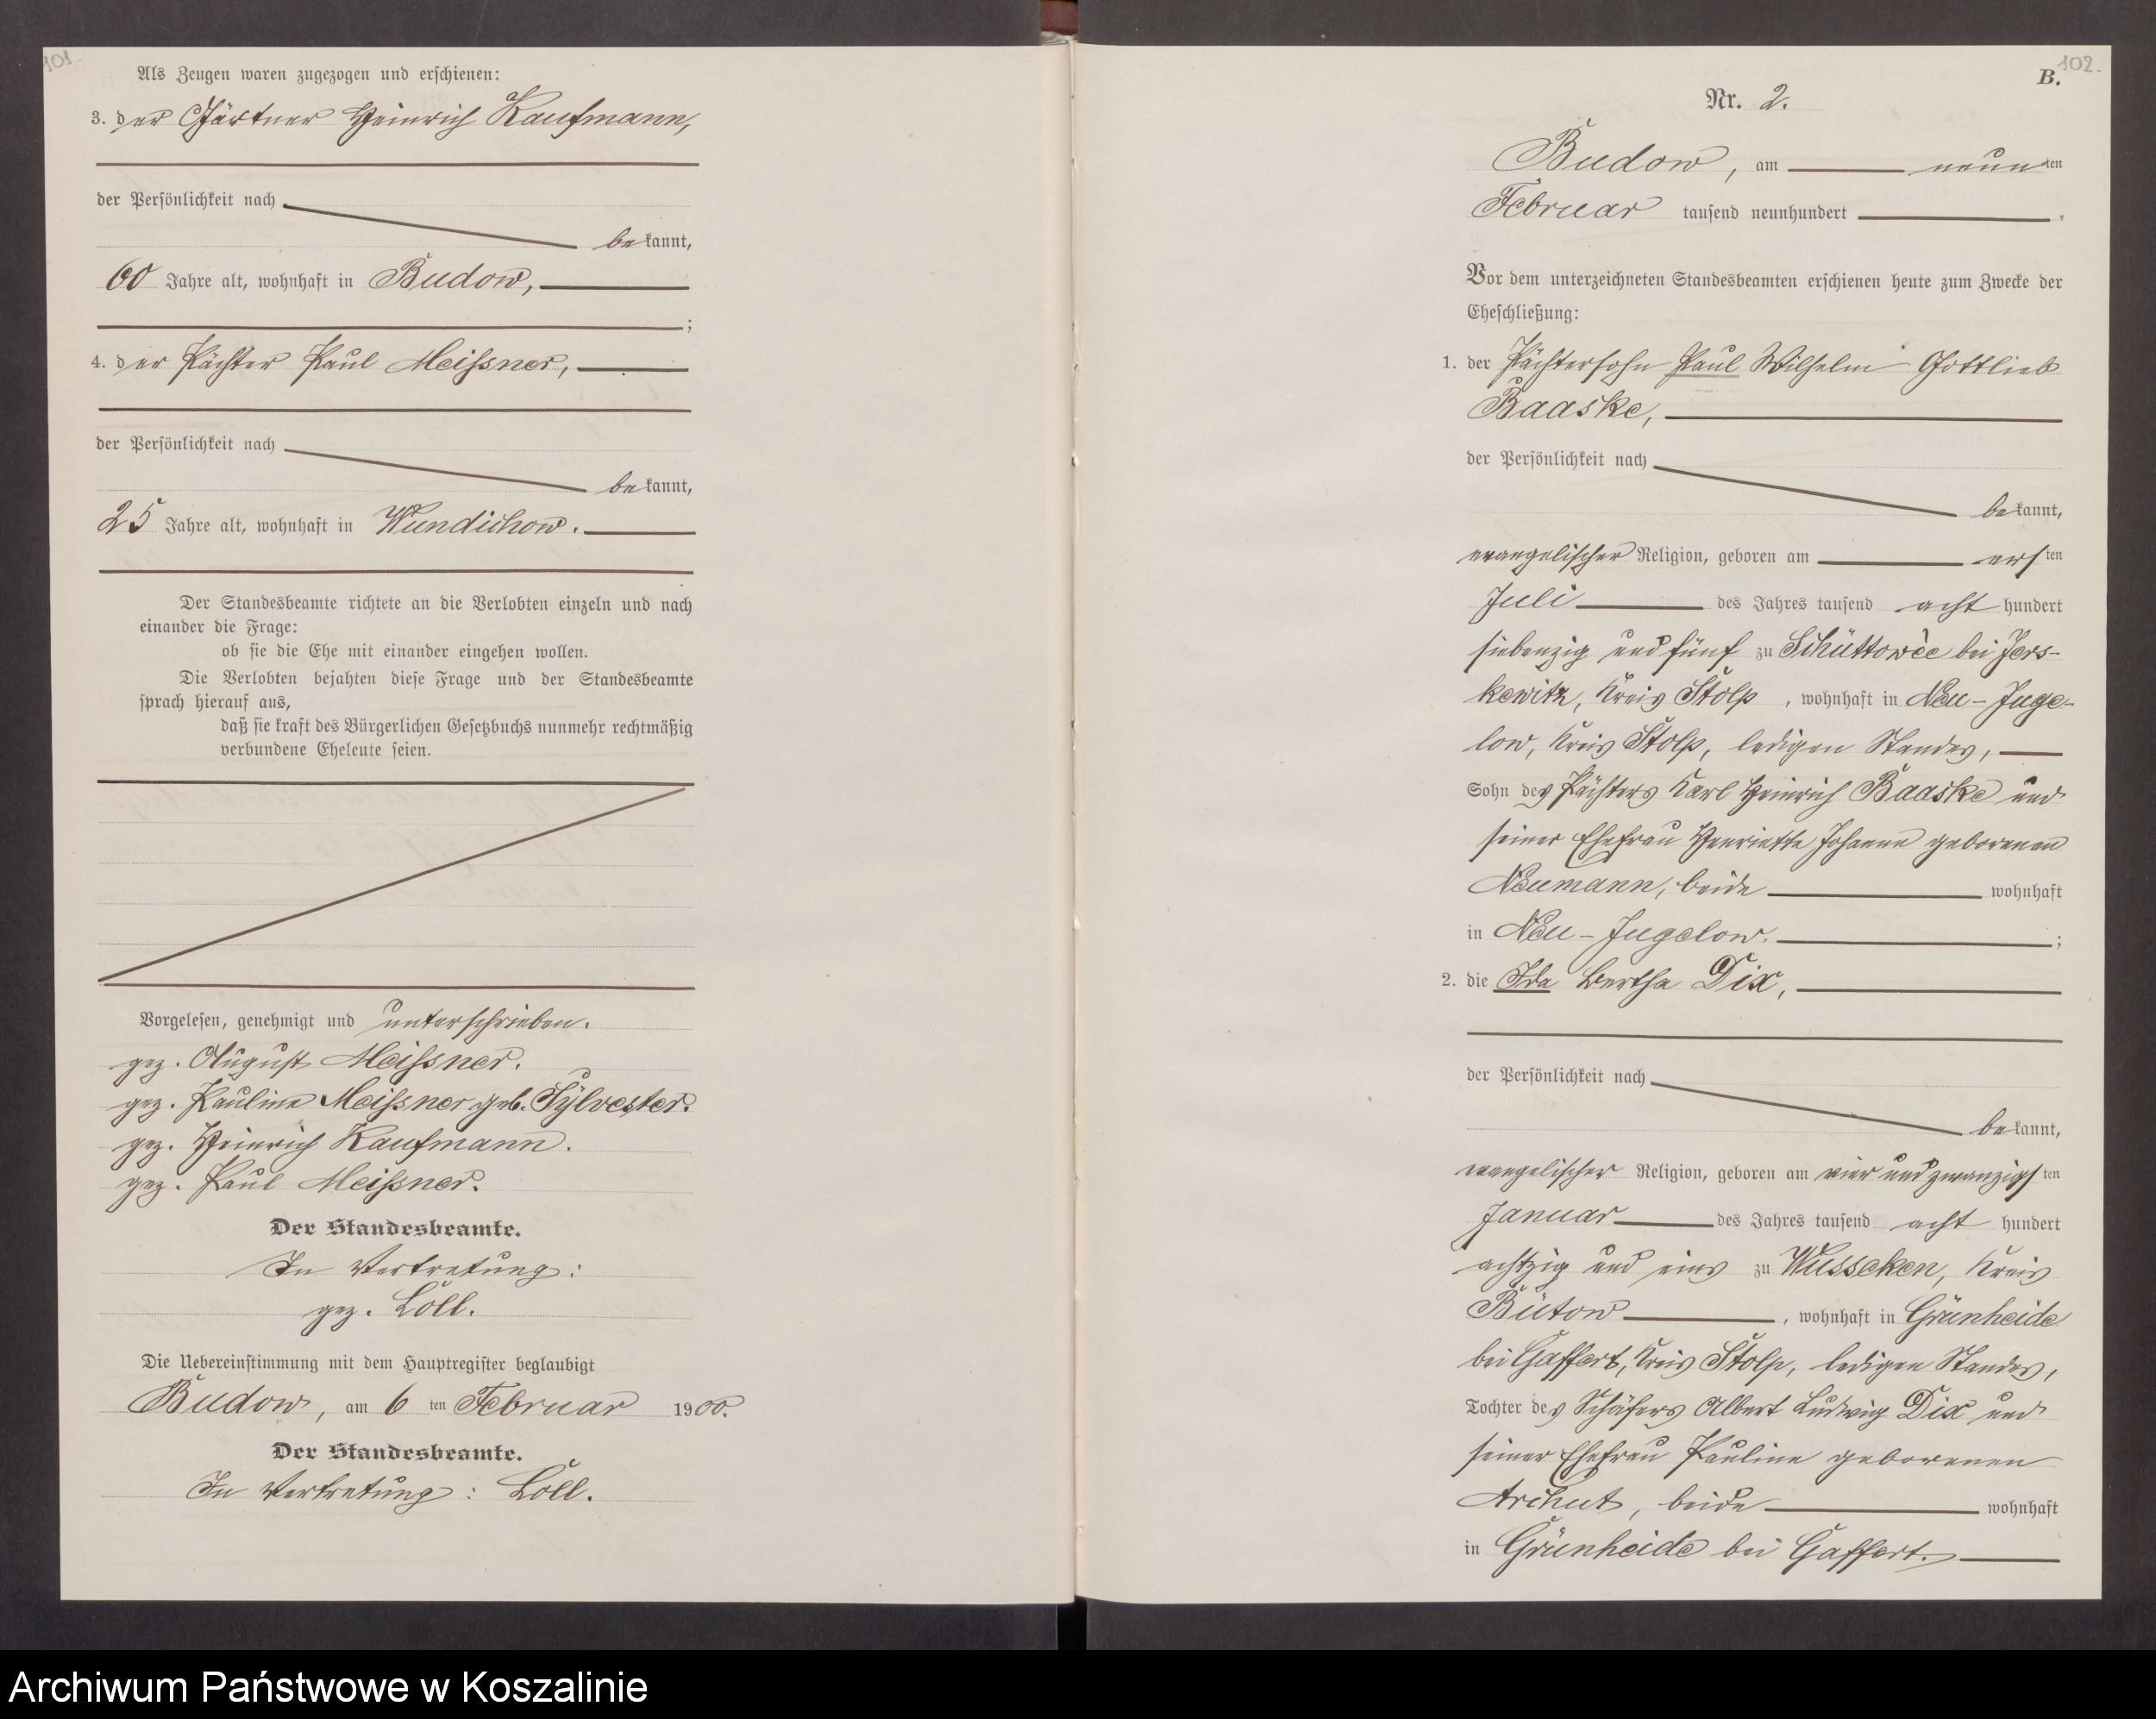 101.
Als Zeugen waren zugezogen und erschienen:
3. der Gärtner Heinrich Kaufmann,
der Persönlichkeit nach
bekannt,
60 Jahre alt, wohnhaft in Budow,
;
4. der Pächter Paul Meißner,
der Persönlichkeit nach
bekannt,
25 Jahre alt, wohnhaft in Wundichow.
Der Standesbeamte richtete an die Verlobten einzeln und nach
einander die Frage:
ob sie die Ehe mit einander eingehen wollen.
Die Verlobten bejahten diese Frage und der Standesbeamte
sprach hierauf aus,
daß sie kraft des Bürgerlichen Gesetzbuchs nunmehr rechtmäßig
verbundene Eheleute seien.
Vorgelesen, genehmigt und unterschrieben.
gez. August Meißner.
gez. Pauline Meißner geb. Sylvester.
gez. Heinrich Kaufmann.
gez. Paul Meißner.
Der Standesbeamte.
In Vertretung:
gez. Löll.
Die Uebereinstimmung mit dem Hauptregister beglaubigt
Budow, am 6 ten Februar 1900.
Der Standesbeamte.
In Vertretung: Löll.
102.
B.
Nr. 2.
Budow, am neunten
Februar tausend neunhundert .
Vor dem unterzeichneten Standesbeamten erschienen heute zum Zwecke der
Eheschließung:
1. der Pächtersohn Paul Wilhelm Gottlieb
Baaske,
der Persönlichkeit nach
bekannt,
evangelischer Religion, geboren am ersten
Juli des Jahres tausend acht hundert
siebenzig und fünf zu Schüttowèe bei Jers-
kewitz, Kreis Stolp , wohnhaft in Neu-Juge-
low, Kreis Stolp, ledigen Standes,
Sohn des Pächters Karl Heinrich Baaske und
seiner Ehefrau Henriette Johanne geborenen
Neumann, beide wohnhaft
in Neu-Jugelow. ;
2. die Ida Bertha Dix,
der Persönlichkeit nach
bekannt,
evangelischer Religion, geboren am vier und zwanzigsten
Januar des Jahres tausend acht hundert
achtzig und eins zu Wusseken, Kreis
Bütow , wohnhaft in Grünheide
bei Gaffert, Kreis Stolp, ledigen Standes,
Tochter des Schäfers Albert Ludwig Dix und
seiner Ehefrau Pauline geborenen
Arihut, beide wohnhaft
in Grünheide bei Gaffert.
Archiwum Państwowe w Koszalinie